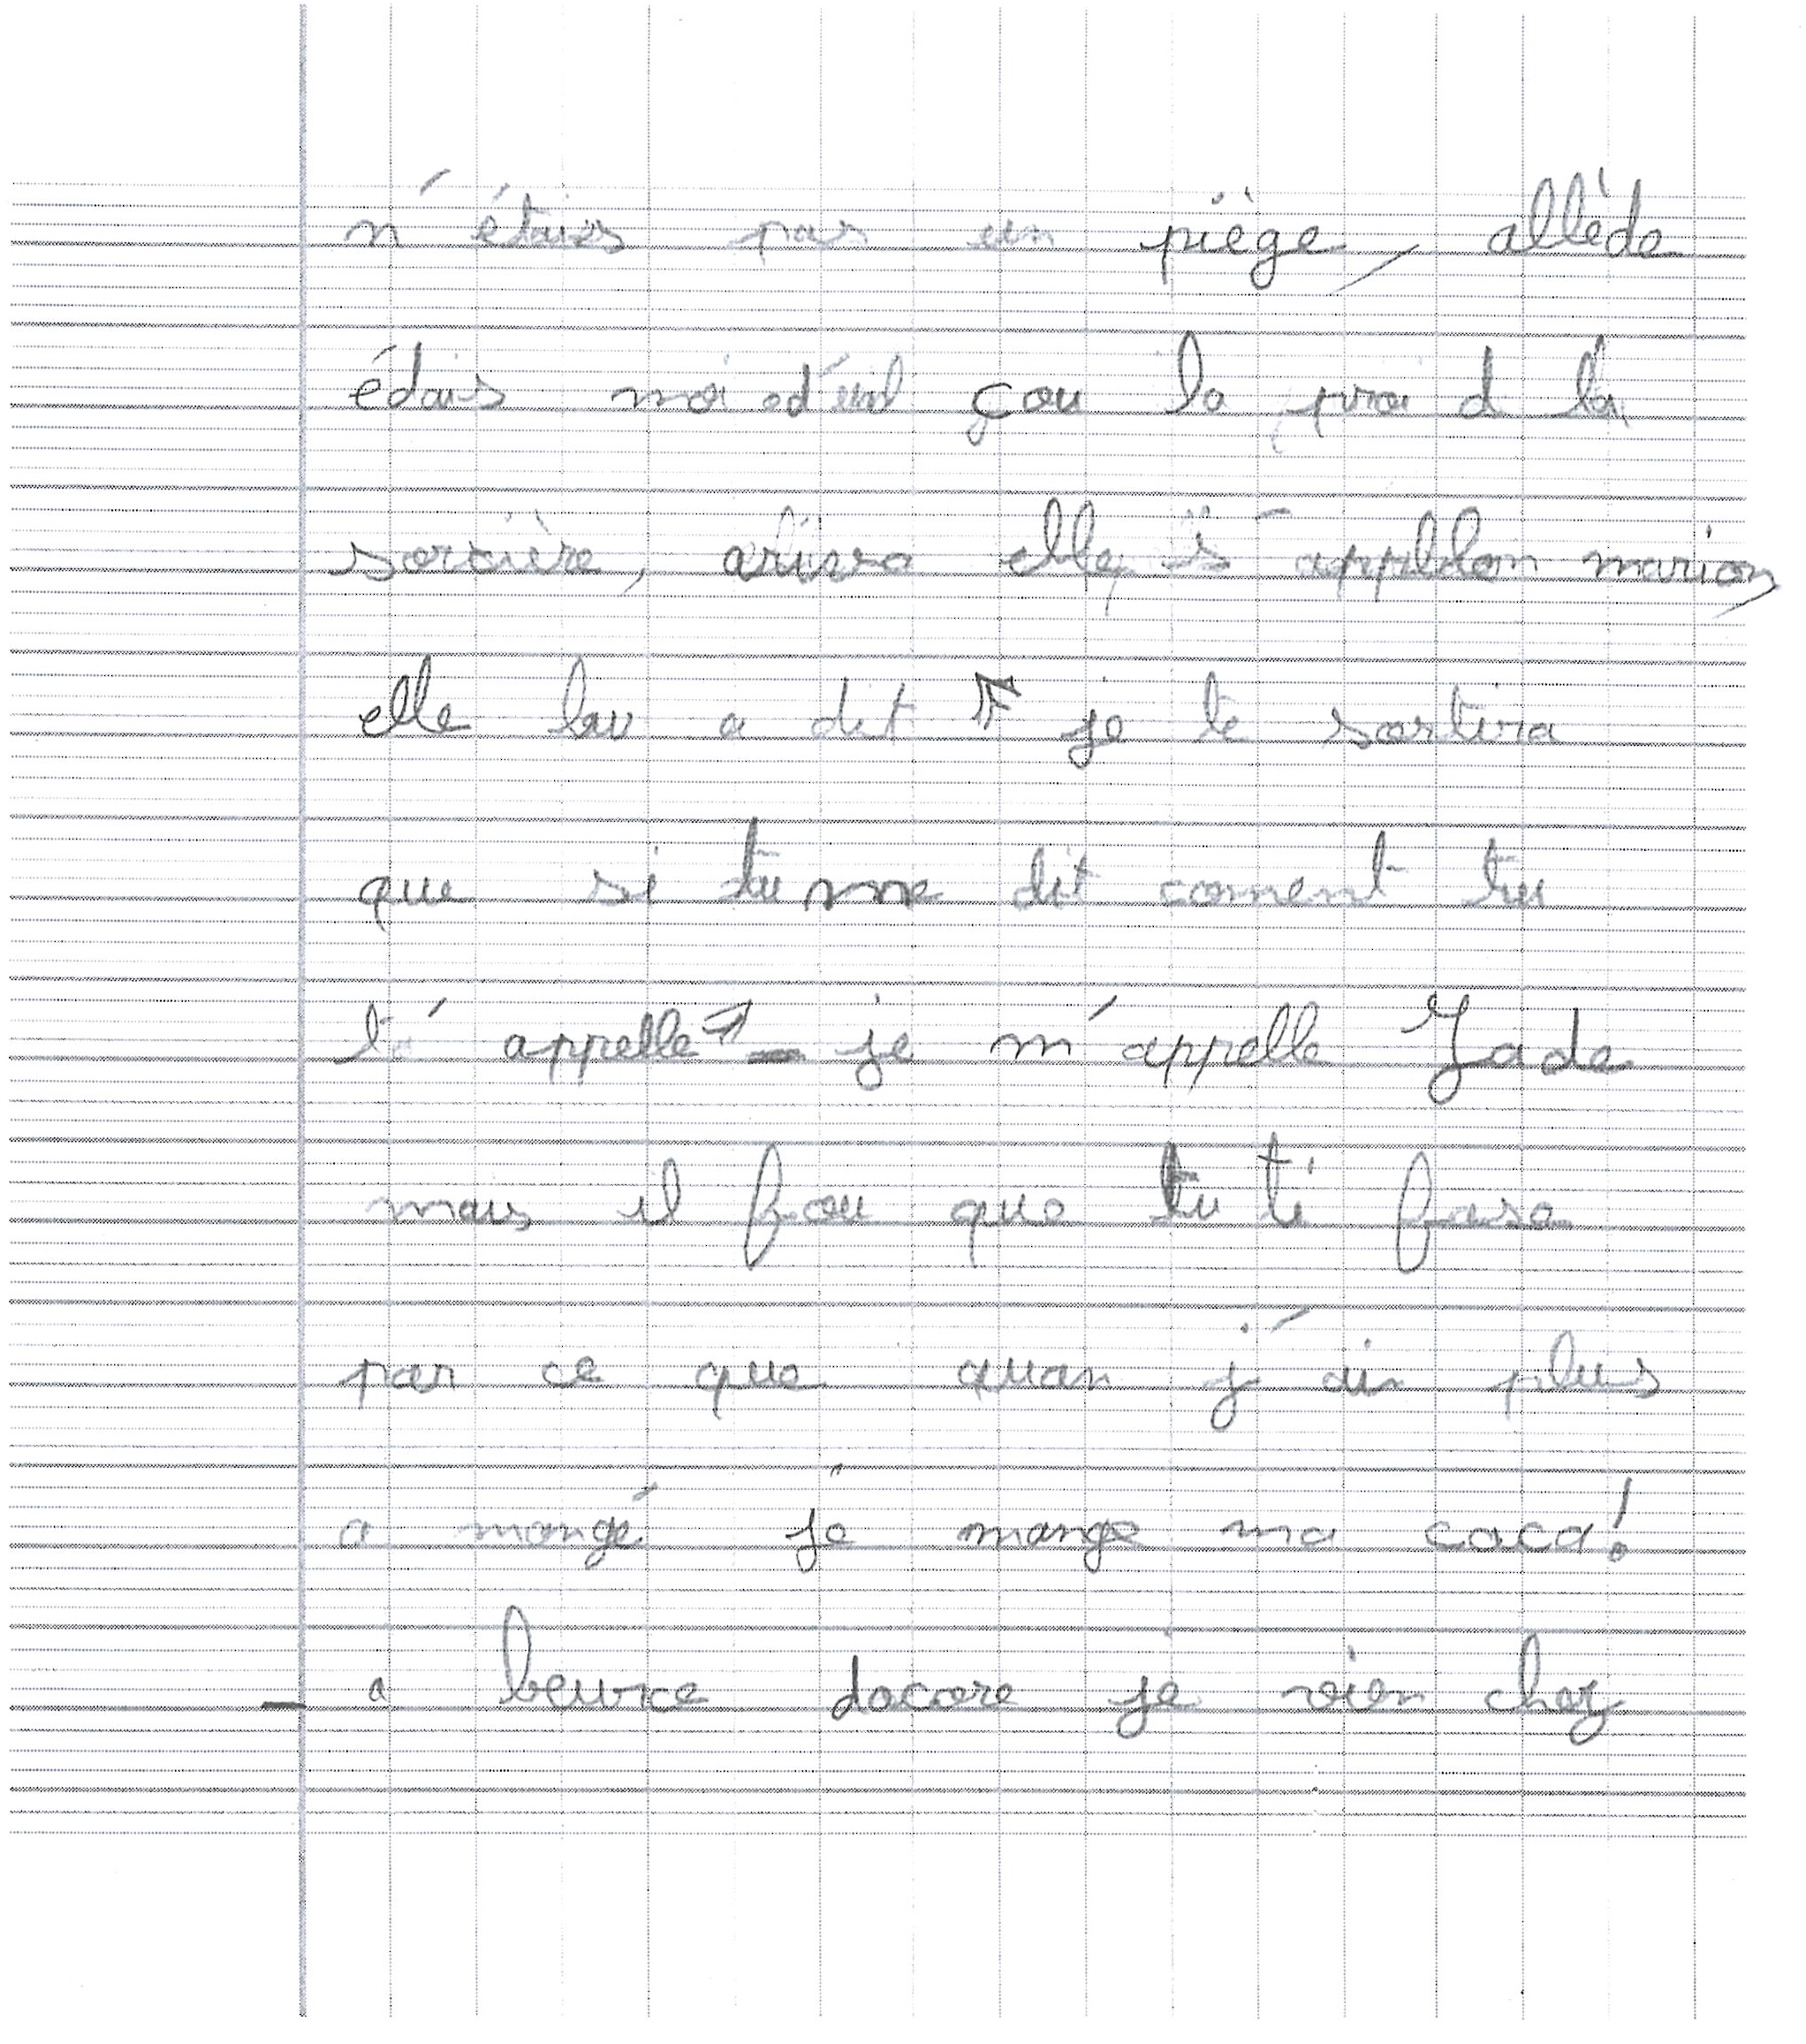 n'étais pas un piège, allède
édais moi d'un çou la proi d la
sorcière, ariva elle s'appellon marion,
elle lui a dit " je te sortira
que si tu me dit coment tu
t'appelle" – je m'appelle Jade
mais il fou que tu ti fase
par ce que quan j'ai plus
a mangé je mange ma caca!
– a beurce dacore je vien chez